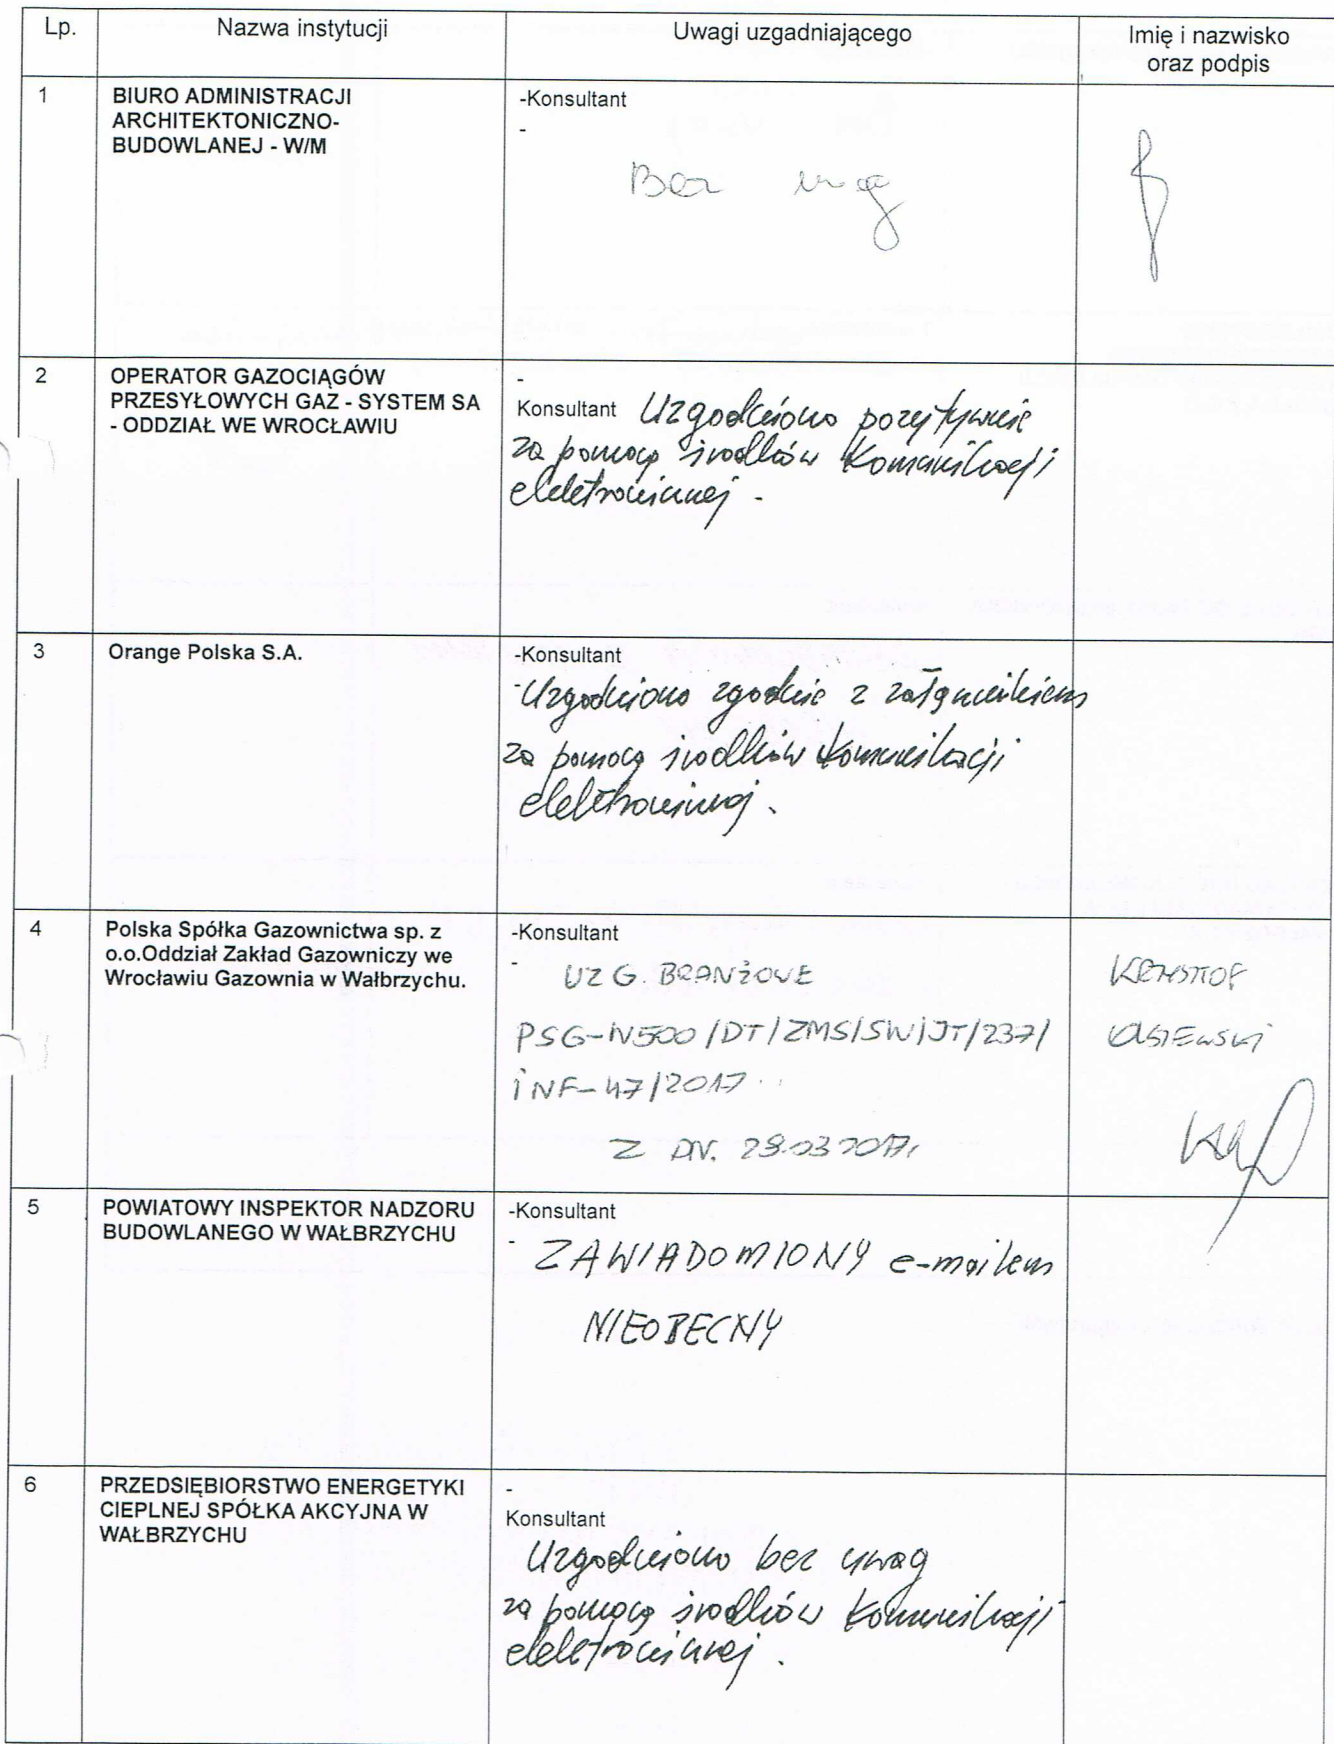 Lp.
Nazwa instytucji
Uwagi uzgadniającego
Imię i nazwisko
oraz podpis
1
BIURO ADMINISTRACJI
ARCHITEKTONICZNO-
BUDOWLANEJ - W/M
-Konsultant
-
Bez uwag
2
OPERATOR GAZOCIĄGÓW
PRZESYŁOWYCH GAZ - SYSTEM SA
- ODDZIAŁ WE WROCŁAWIU
-
Konsultant Uzgodniono pozytywnie
za pomocą środków komunikacji
elektronicznej -
3
Orange Polska S.A.
-Konsultant
- Uzgodniono zgodnie z załącznikiem
za pomocą środków komunikacji
elektronicznej.
4
Polska Spółka Gazownictwa sp. z
o.o.Oddział Zakład Gazowniczy we
Wrocławiu Gazownia w Wałbrzychu.
-Konsultant
- UZG. BRANŻOWE
PSG-W500/DT/ZMS/SW/JT/237/
INF-47/2017
Z DN. 29.03 2017r
KRZYSZTOF
5
POWIATOWY INSPEKTOR NADZORU
BUDOWLANEGO W WAŁBRZYCHU
-Konsultant
- ZAWIADOMIONY e-mailem
NIEOBECNY
6
PRZEDSIĘBIORSTWO ENERGETYKI
CIEPLNEJ SPÓŁKA AKCYJNA W
WAŁBRZYCHU
-
Konsultant
Uzgodniono bez uwag
za pomocą środków komunikacji
elektronicznej.